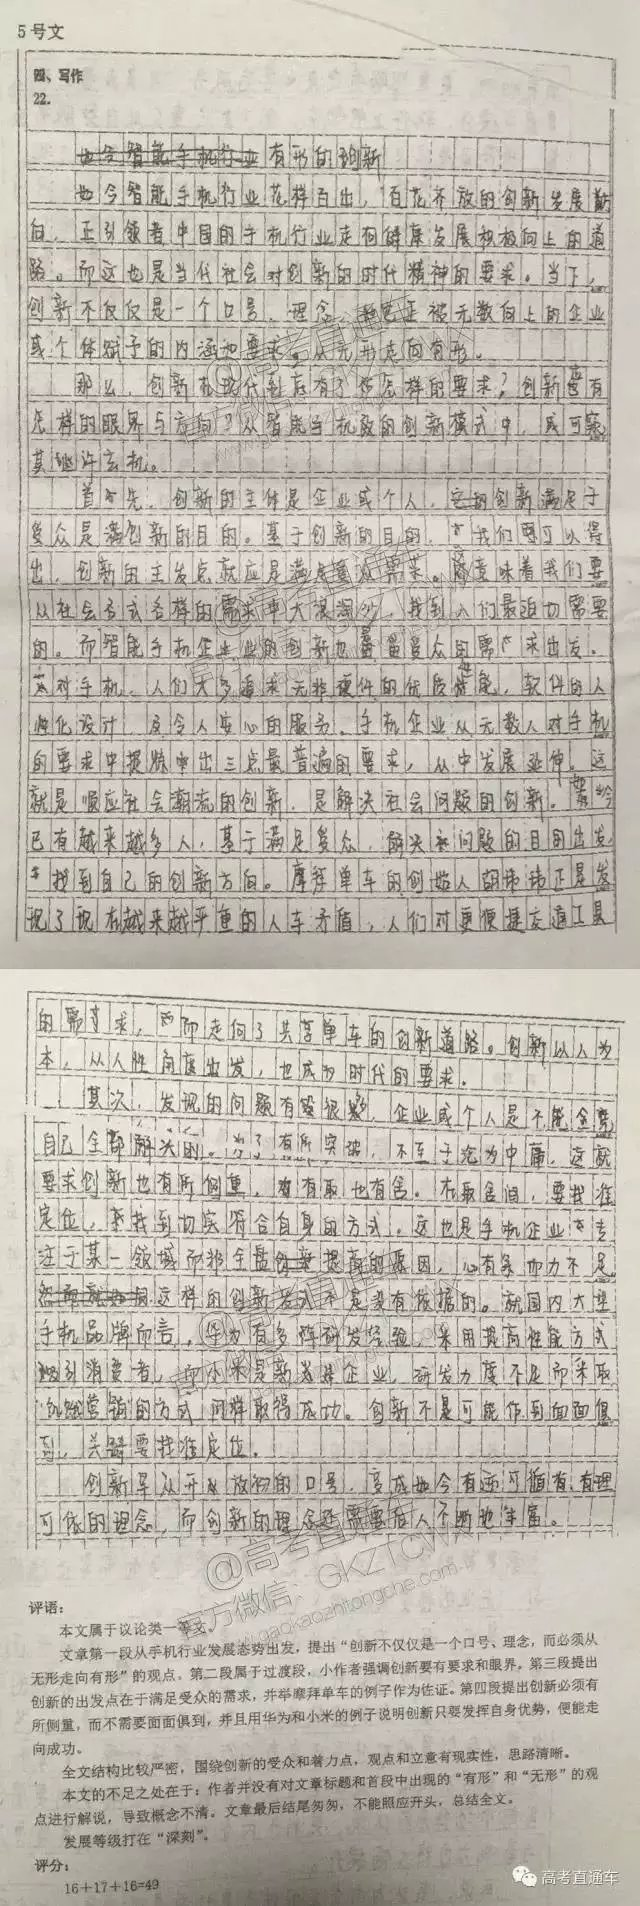 5号文
四、写作
22.
如今智能手机行业有形的创新
如今智能手机行业花样百出，百花齐放的创新发展动
向，正引领着中国的手机行业走向健康发展积极向上的道
路。而这也是当代社会对创新的时代精神的要求。当下，
创新不仅仅是一个口号、理念，正被无数向上的企业
或个体赋予的内涵和要求。从无形走向有形。
那么，创新在现代到底有了怎样的要求？创新要有
怎样的眼界与方向？从智能手机的创新模式中，或可窥
其许玄机。
首先，创新的主体是企业或个人，创新满足于
受众是创新的目的。基于创新的目的，我们可以得
出，创新的出发点就应是满足受众需求。这意味着我们要
从社会各式各样的需求中大浪淘沙，找到人们最迫切需要
的。而智能手机企业的创新也是受众的需求出发。
对手机，人们大多追求无非硬件的优质性能，软件的人
性化设计，及令人安心的服务。手机企业从无数人对手机
的要求中提炼出三点最普遍的要求，从中发展延伸。这
就是顺应社会潮流的创新，是解决社会问题的创新。如今
已有越来越多人，基于满足受众，解决问题的目的出发，
找到自己的创新方向。摩拜单车的创始人胡玮炜正是发
现了现在越来越严重的人车矛盾，人们对更便捷交通工具
的需求，而走向了共享单车的创新道路。创新以人为
本，从人性角度出发，也成为时代的要求。
其次，发现的问题有很多，企业或个人是不能全凭
自己全部解决的。为了有所突破，不至于沦为中庸，这就
要求创新也有所侧重，有取也有舍。在取舍间，要找准
定位，找到切实符合自身的方式。这也是手机企业专
注于某一领域而非全盘提高的原因，心有余而力不足。
这样的创新方式不是没有依据的。就国内大型
手机品牌而言，华为有多阵研发经验，采用提高性能方式
吸引消费者，而小米是新企业，研发力度不足而采取
“饥饿营销”的方式，同样取得成功。创新不是可能作到面面俱
到，关键要找准定位。
创新早从开放的口号，变成如今有迹可循有理
可依的理念，而创新的理念还需要后人不断地丰富。
评语：
本文属于议论类一等文。
文章第一段从手机行业发展态势出发，提出“创新不仅仅是一个口号、理念，而必须从
无形走向有形”的观点。第二段属于过渡段，小作者强调创新要有要求和眼界，第三段提出
创新的出发点在于满足受众的需求，并举摩拜单车的例子作为佐证。第四段提出创新必须有
所侧重，而不需要面面俱到，并且用华为和小米的例子说明创新只要发挥自身优势，便能走
向成功。
全文结构比较严密，围绕创新的受众和着力点，观点和立意有现实性，思路清晰。
本文的不足之处在于：作者并没有对文章标题和首段中出现的“有形”和“无形”的观
点进行解说，导致概念不清。文章最后结尾匆匆，不能照应开头，总结全文。
发展等级打在“深刻”。
评分：
16+17+16=49
高考直通车
@高考直通车
官方微信：GKZTCWX
www.gaokaozhitongche.com